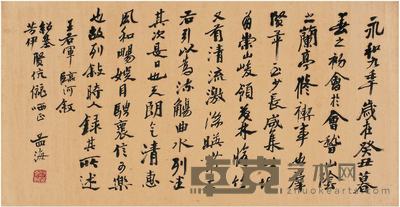 永和九年歲在癸丑暮
春之初會於會稽山陰
之蘭亭修禊事也羣
賢畢至少長咸集此
有崇山峻領茂林修竹
又有清流激湍映帶左
右引以為流觴曲水列坐
其次是日也天朗氣清惠
風和暢娛目騁懷信可樂
也故列敘時人錄其所述
王右軍臨河敘
賢伉儷哂正